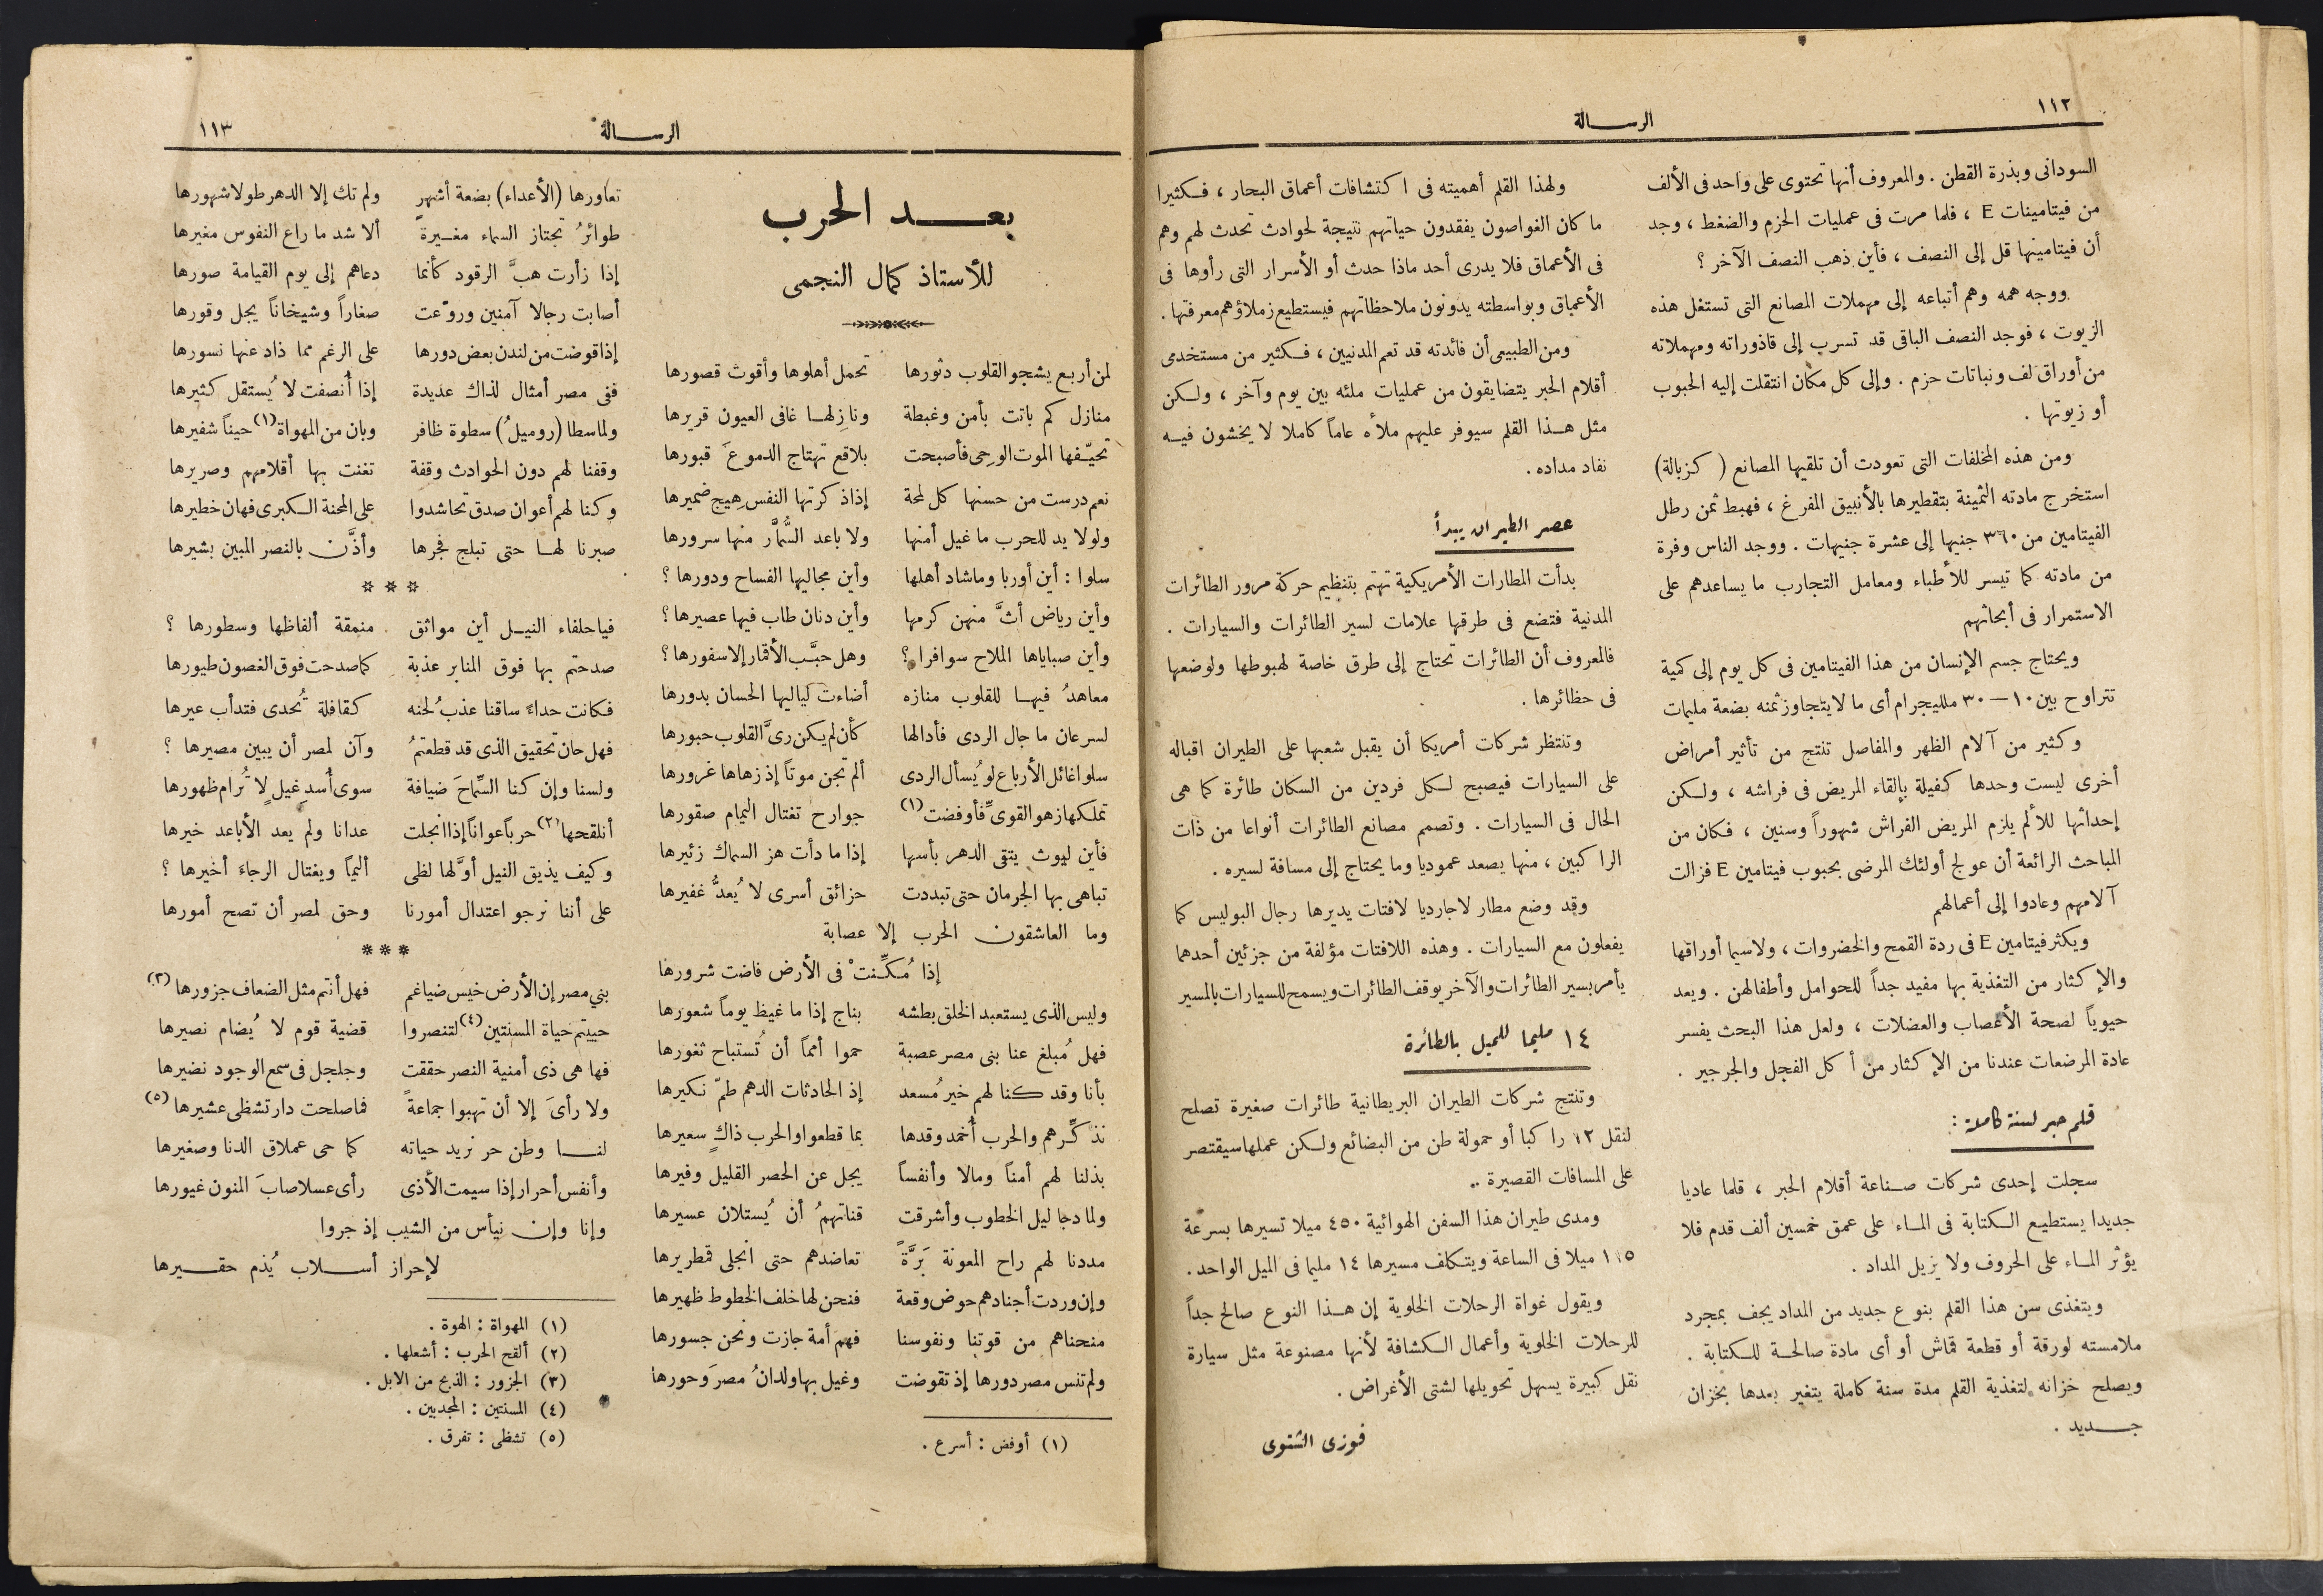 ١١٢
الرسالة
السودانى وبذرة القطن . والمعروف أنها تحتوى على واحد فى الألف
من فيتامينات E ، فلما مرت فى عمليات الحزم والضغط ، وجد
أن فيتامينها قل إلى النصف ، فأين ذهب النصف الآخر ؟
ووجه همه وهم أتباعه إلى مهملات المصانع التى تستغل هذه
الزيوت ، فوجد النصف الباقى قد تسرب إلى قاذوراته ومهملاته
من أوراق لف ونباتات حزم . وإلى كل مكان انتقلت إليه الحبوب
أو زيوتها .
ومن هذه المخلفات التى تعودت أن تلقيها المصانع ( كزبالة )
استخرج مادته الثمينة بتقطيرها بالأنبيق المفرغ ، فهبط ثمن رطل
الفيتامين من ٣٦٠ جنيها إلى عشرة جنيهات . ووجد الناس وفرة
من مادته كما تيسر للأطباء ومعامل التجارب ما يساعدهم على
الاستمرار فى أبحاثهم
ويحتاج جسم الإنسان من هذا الفيتامين فى كل يوم إلى كمية
تتراوح بين ١٠ — ٣٠ ملليجرام أى ما لا يتجاوز ثمنه بضعة مليمات
وكثير من آلام الظهر والمفاصل تنتج من تأثير أمراض
أخرى ليست وحدها كفيلة بإلقاء المريض فى فراشه ، ولكن
إحداثها للألم يلزم المريض الفراش شهوراً وسنين ، فكان من
المباحث الرائعة أن عولج أولئك المرضى بحبوب فيتامين E فزالت
آلامهم وعادوا إلى أعمالهم
ويكثر فيتامين E فى ردة القمح والخضروات ، ولاسيما أوراقها
والإكثار من التغذية بها مفيد جداً للحوامل وأطفالهن . ويعد
حيوياً لصحة الأعصاب والعضلات ، ولعل هذا البحث يفسر
عادة المرضعات عندنا من الإكثار من أكل الفجل والجرجير .
قلم حبر لسنة كاملة :
سجلت إحدى شركات صناعة أقلام الحبر ، قلما عاديا
جديدا يستطيع الكتابة فى الماء على عمق خمسين ألف قدم فلا
يؤثر الماء على الحروف ولا يزيل المداد .
ويتغذى سن هذا القلم بنوع جديد من المداد يجف بمجرد
ملامسته لورقة أو قطعة قماش أو أى مادة صالحة للكتابة .
ويصلح خزانه لتغذية القلم مدة سنة كاملة يتغير بعدها بخزان
جديد .
ولهذا القلم أهميته فى اكتشافات أعماق البحار ، فكثيرا
ما كان الغواصون يفقدون حياتهم نتيجة لحوادث تحدث لهم وهم
فى الأعماق فلا يدرى أحد ماذا حدث أو الأسرار التى رأوها فى
الأعماق وبواسطته يدونون ملاحظاتهم فيستطيع زملاؤهم معرفتها .
ومن الطبيعى أن فائدته قد تعم المدنيين ، فكثير من مستخدمى
أقلام الحبر يتضايقون من عمليات ملئه بين يوم وآخر ، ولكن
مثل هذا القلم سيوفر عليهم ملأه عاماً كاملا لا يخشون فيه
نفاد مداده .
عصر الطيران يبدأ
بدأت المطارات الأمريكية تهتم بتنظيم حركة مرور الطائرات
المدنية فتضع فى طرقها علامات لسير الطائرات والسيارات .
فالمعروف أن الطائرات تحتاج إلى طرق خاصة لهبوطها ولوضعها
فى حظائرها .
وتنتظر شركات أمريكا أن يقبل شعبها على الطيران اقباله
على السيارات فيصبح لكل فردين من السكان طائرة كما هى
الحال فى السيارات . وتصمم مصانع الطائرات أنواعا من ذات
الراكبين ، منها يصعد عموديا وما يحتاج إلى مسافة لسيره .
وقد وضع مطار لاجارديا لافتات يديرها رجال البوليس كما
يفعلون مع السيارات . وهذه اللافتات مؤلفة من جزئين أحدهما
يأمر بسير الطائرات والآخر يوقف الطائرات ويسمح للسيارات بالمسير
١٤ مليما للميل بالطائرة
وتنتج شركات الطيران البريطانية طائرات صغيرة تصلح
لنقل ١٢ راكبا أو حمولة طن من البضائع ولكن عملها سيقتصر
على المسافات القصيرة .
ومدى طيران هذا السفن الهوائية ٤٥٠ ميلا تسيرها بسرعة
١١٥ ميلا فى الساعة ويتكلف مسيرها ١٤ مليما فى الميل الواحد .
ويقول غواة الرحلات الخلوية إن هذا النوع صالح جداً
للرحلات الخلوية وأعمال الكشافة لأنها مصنوعة مثل سيارة
نقل كبيرة يسهل تحويلها لشتى الأغراض .
فوزى الشتوى
الرسالة
١١٣
بعد الحرب
للأستاذ كمال النجمى
لمن أربع يشجو القلوب دثورها تحمل أهلوها وأقوت قصورها
منازل كم باتت بأمن وغبطة ونازلها غافى العيون قريرها
تحيّفها الموت الوحى فأصبحت بلاقع تهتاج الدموعَ قبورها
نعم درست من حسنها كل لمحة إذا ذكرتها النفس هيج ضميرها
ولولا يد للحرب ما غيل أمنها ولا باعد السُّمَّار منها سرورها
سلوا : أين أوربا وما شاد أهلها وأين مجاليها الفساح ودورها ؟
وأين رياض أثَّ منهن كرمها وأين دنان طاب فيها عصيرها ؟
وأين صباياها الملاح سوافرا ؟ وهل حبَّب الأقمار إلا سفورها ؟
معاهدُ فيها للقلوب منازه أضاءت لياليها الحسان بدورها
لسرعان ما جال الردى فأدالها كأن لم يكن رىَّ القلوب حبورها
سلوا غائل الأرباع لو يُسأل الردى ألم تجن موتاً إذ زهاها غرورها
تملكها زهو القوىِّ فأوفضت (١) جوارح تغتال اليمام صقورها
فأين ليوث يتقى الدهر بأسها إذا ما دأت هز السماك زئيرها
تباهى بها الجرمان حتى تبددت حزائق أسرى لا يُعدُّ غفيرها
وما العاشقون الحرب إلا عصابة
إذا مُكِّنتْ فى الأرض فاضت شرورها
وليس الذى يستعبد الخلق بطشه بناج إذا ما غيظ يوماً شعورها
فهل مُبلغ عنا بنى مصر عصبة حموا أمماً أن تُستباح ثغورها
بأنا وقد كنا لهم خير مُسعد إذ الحادثات الدهم طمّ نكيرها
نذكِّرهم والحرب أُخمد وقدها بما قطعوا والحرب ذاكٍ سعيرها
بذلنا لهم أمناً ومالا وأنفساً يجل عن الحصر القليل وفيرها
ولما دجا ليل الخطوب وأشرقت قناتهمُ أن يُستلان عسيرها
مددنا لهم راح المعونة بَرَّةً تعاضدهم حتى انجلى قمطريرها
وإن وردت أجنادهم حوض وقعة فنحن لها خلف الخطوط ظهيرها
منحناهم من قوتنا ونفوسنا فهم أمة جازت ونحن جسورها
ولم تنس مصر دورها إذ تقوضت وغيل بها ولدانُ مصرَ وَحورها
(١) أوفض : أسرع .
تعاورها (الأعداء) بضعة أشهرٍ ولم تك إلا الدهر طولا شهورها
طوائرُ تجتاز السماء مغيرة ألا شد ما راع النفوس مغيرها
إذا زأرت هبَّ الرقود كأنما دعاهم إلى يوم القيامة صورها
أصابت رجالا آمنين وروّعت صغاراً وشيخاناً يجل وقورها
إذا قوضت من لندن بعض دورها على الرغم مما ذاد عنها نسورها
ففى مصر أمثال لذاك عديدة إذا أُنصفت لا يُستقل كثيرها
ولما سطا (روميلُ) سطوة ظافر وبان من المهواة (١) حيناً شفيرها
وقفنا لهم دون الحوادث وقفة تغنت بها أقلامهم وصريرها
وكنا لهم أعوان صدق تحاشدوا على المحنة الكبرى فهان خطيرها
صبرنا لها حتى تبلج فجرها وأذَّن بالنصر المبين بشيرها
* * *
فيا حلفاء النيل أين مواثق منمقة ألفاظها وسطورها ؟
صدحتم بها فوق المنابر عذبة كما صدحت فوق الغصون طيورها
فكانت حداءً ساقنا عذب لحنه كقافلة تُحدى فتدأب عيرها
فهل حان تحقيق الذى قد قطعتمُ وآن لمصر أن يبين مصيرها ؟
ولسنا وإن كنا السِّماحَ ضيافة سوى أُسدِ غيلٍ لا تُرام ظهورها
أنلقحها (٢) حرباً عواناً إذا انجلت عدانا ولم يعد الأباعد خيرها
وكيف يذيق النيل أوَّلها لظى أليماً ويغتال الرجاءَ أخيرها ؟
على أننا نرجو اعتدال أمورنا وحق لمصر أن تصح أمورها
* * *
بني مصر إن الأرض خيس ضياغم فهل أنتم مثل الضعاف جزورها (٣)
حييتم حياة المسنتين (٤) لتنصروا قضية قوم لا يُضام نصيرها
فها هى ذى أمنية النصر حققت وجلجل فى سمع الوجود نضيرها
ولا رأىَ إلا أن تهبوا جماعةً فما صلحت دار تشظى عشيرها (٥)
لنا وطن حر نريد حياته كما حى عملاق الدنا وصغيرها
وأنفس أحرار إذا سيمت الأذى رأى عسلا صابَ المنون غيورها
وإنا وإن نيأس من الشيب إذ جروا
لإحراز أسلاب يُذم حقيرها
(١) المهواة : الهوة .
(٢) ألقح الحرب : أشعلها .
(٣) الجزور : الذبح من الابل .
(٤) المسنتين : المجدبين .
(٥) تشظى : تفرق .